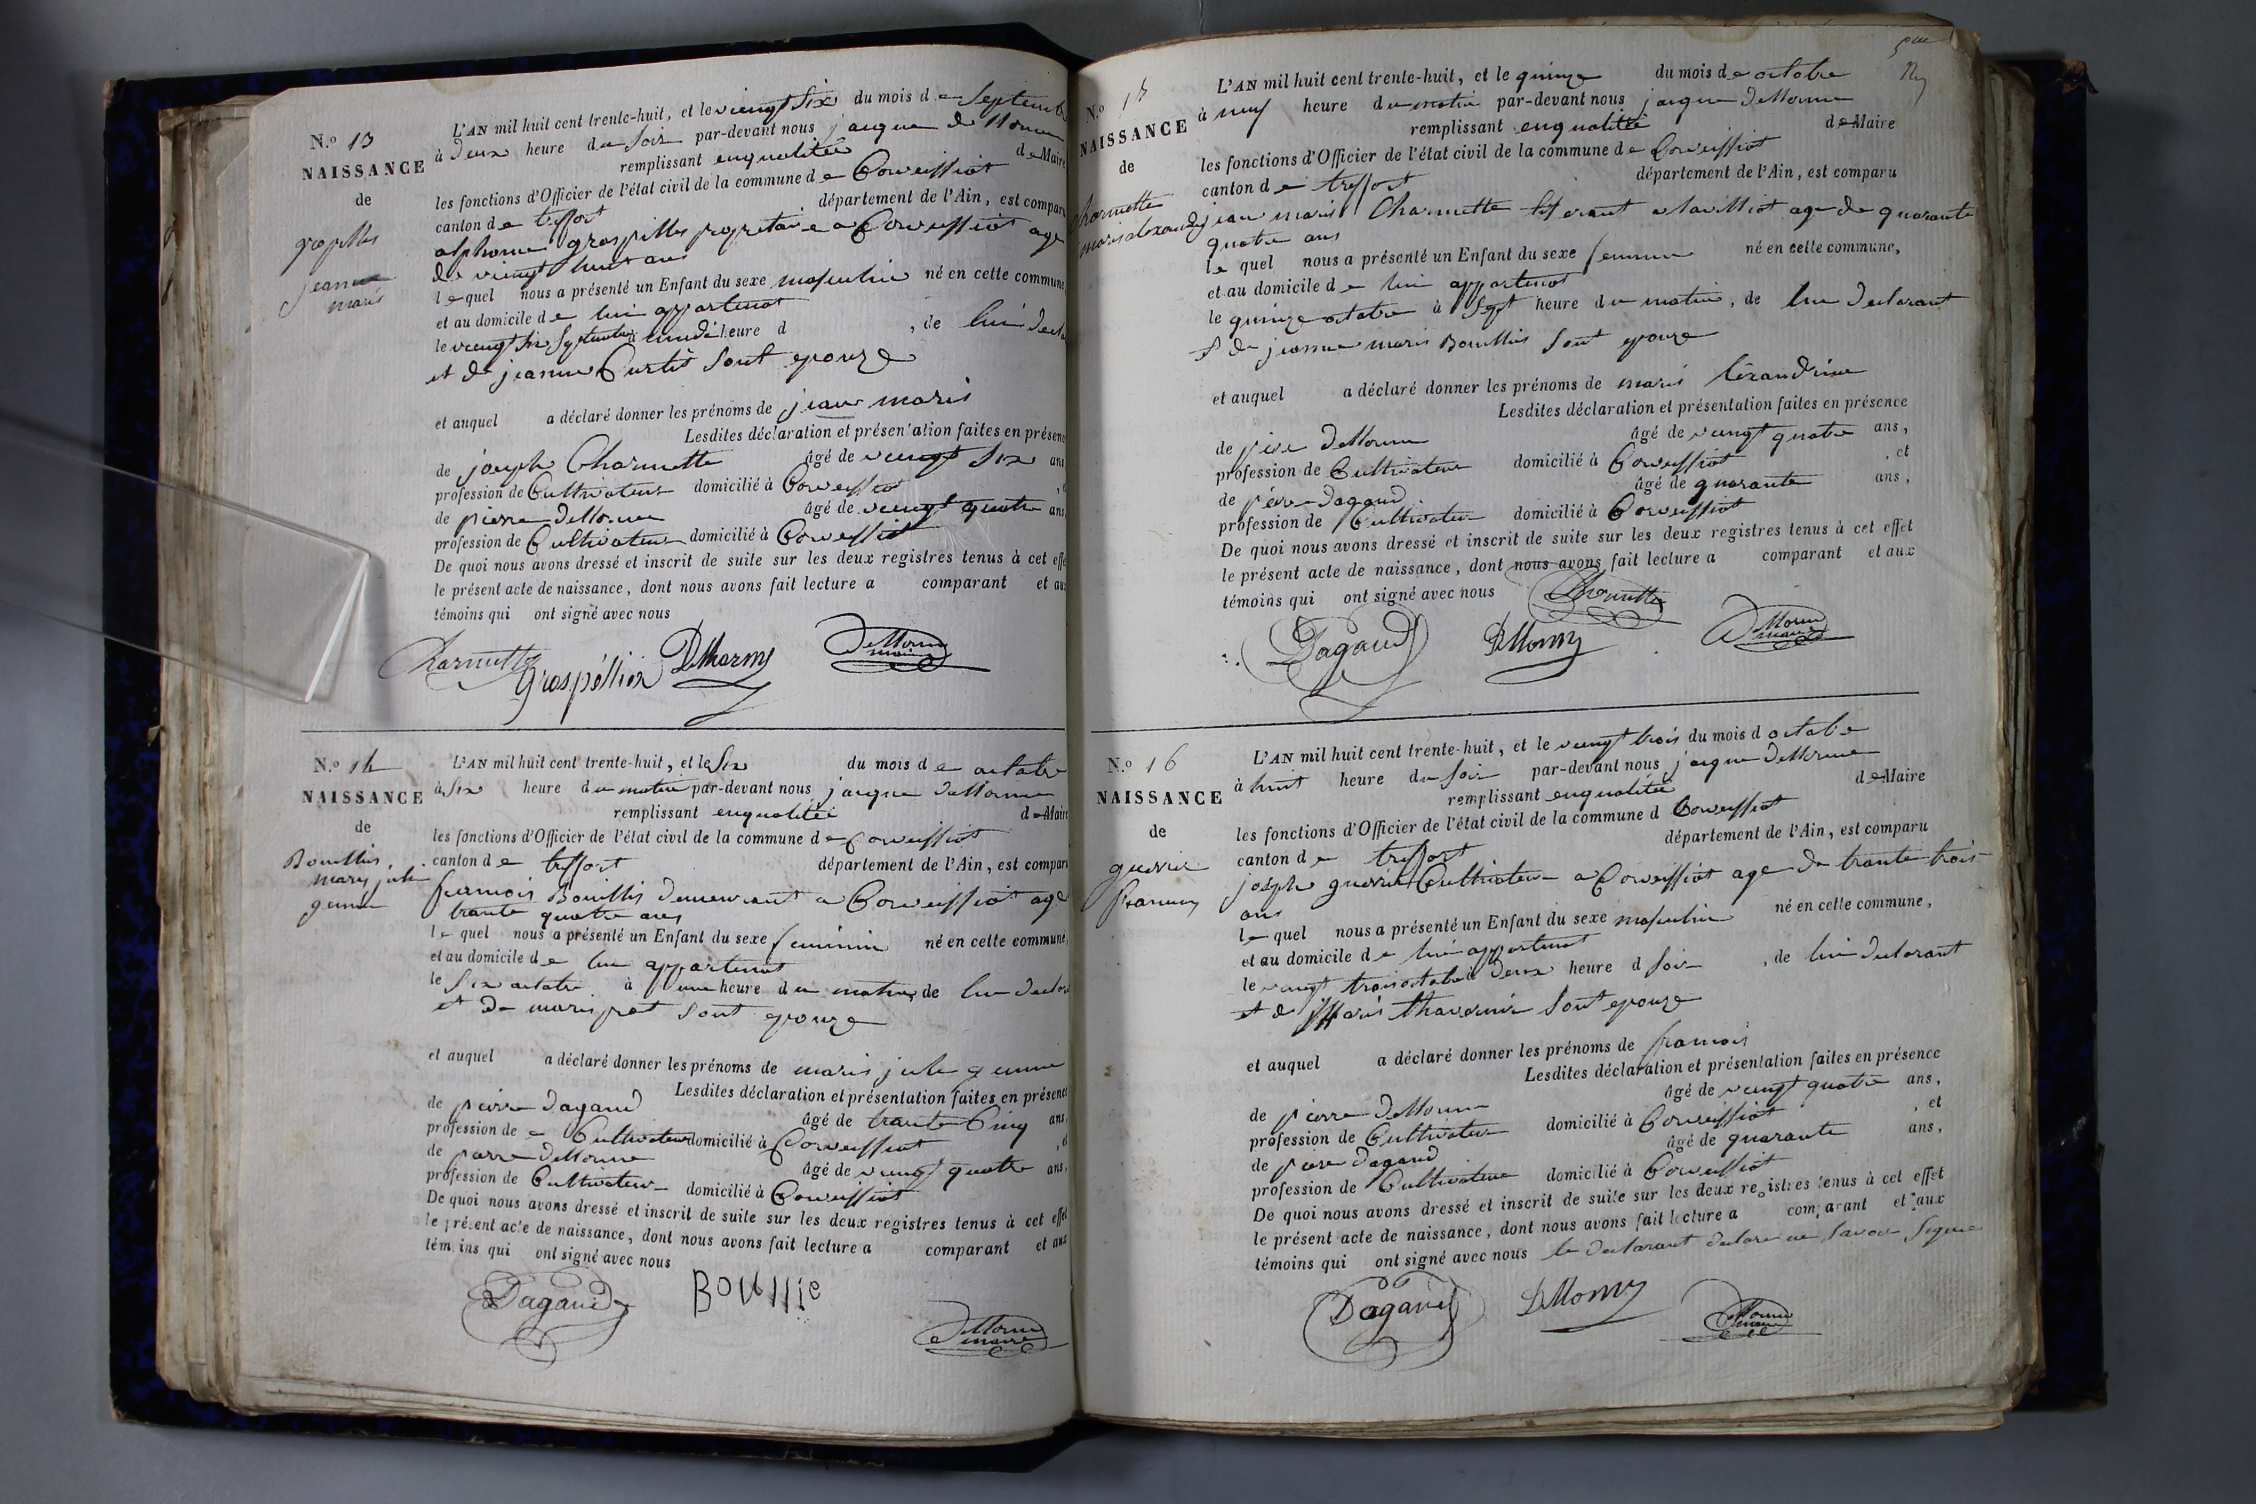 N.o 13
NAISSANCE
de
grospellier
jeanne
marie
L'AN mil huit cent trente-huit, et le vieng six du mois de Septembre
à deux heure du soir par-devant nous jacque deMorne
remplissant enqualitée de Maire
les fonctions d'Officier de l'état civil de la commune de Corveissiat
canton de treffort département de l'Ain, est comparu
alphonse grospellier propriétaire a Corveissiat age
de viengt huit ans
lequel nous a présenté un Enfant du sexe masculin né en cette commune,
et au domicile de lui appartenat
le viengt six Septembre à heure d , de lui decla
et de jeanne Curtit sont epouze
et auquel a déclaré donner les prénoms de jean marie
Lesdites déclaration et présentation faites en présence
de joseph Charnette âgé de viengt six ans
profession de Cultivateur domicilié à Corveissiat
de pierre deMorne âgé de viengt quatre ans,
profession de Cultivateur domicilié à Corveissiat
De quoi nous avons dressé et inscrit de suite sur les deux registres tenus à cet effet
le présent acte de naissance, dont nous avons fait lecture a comparant et aux
témoins qui ont signé avec nous
Charnette
Grospéllier DeMorny deMorne
maire
N.o 14
NAISSANCE
de
Bouillier
marie julie
L'AN mil huit cent trente-huit, et le Six du mois de octobre
à Six heure du matin par-devant nous jacque deMorne
remplissant enqualitée de Maire
les fonctions d'Officier de l'état civil de la commune de Corveissiat
canton de treffort département de l'Ain, est comparu
Bouillier demeurant a Corveissiat age
trante quatre ans
lequel nous a présenté un Enfant du sexe feminin né en cette commune,
et au domicile de lui appartenat
le Six octobre à une heure du matin, de lui decla
et de marie prat sont epouze
et auquel a déclaré donner les prénoms de marie julie
Lesdites déclaration et présentation faites en présence
de pierre dagaud âgé de trante Cinq ans,
profession de Cultivateur domicilié à Corveissiat
de pierre deMorne âgé de viengt quatre ans,
profession de Cultivateur domicilié à Corveissiat
De quoi nous avons dressé et inscrit de suite sur les deux registres tenus à cet effet
le présent acte de naissance, dont nous avons fait lecture a comparant et aux
témoins qui ont signé avec nous
Dagaud BoUllie
deMorne
maire
N.o 15
NAISSANCE
de
Charnette
L'AN mil huit cent trente-huit, et le quinze du mois de octobre
à neuf heure du matin par-devant nous jacque deMorne
remplissant enqualitée de Maire
les fonctions d'Officier de l'état civil de la commune de Corveissiat
canton de treffort département de l'Ain, est comparu
jean marie Charnette age de quarante
quatre ans
le quel nous a présenté un Enfant du sexe né en cette commune,
et au domicile de lui appartenat
le quinze octobre à Sept heure du matin, de lui declarant
et de jeanne marie Bouillier sont epouze
et auquel a déclaré donner les prénoms de marie lexandrine
Lesdites déclaration et présentation faites en présence
de piere deMorne âgé de viengt quatre ans,
profession de Cultivateur domicilié à Corveissiat , et
de piere dagaud âgé de quarante ans,
profession de Cultivateur domicilié à Corveissiat
De quoi nous avons dressé et inscrit de suite sur les deux registres tenus à cet effet
le présent acte de naissance, dont nous avons fait lecture a comparant et aux
témoins qui ont signé avec nous Charnette
Dagaud DeMorny deMorne
maire
N.o 16
NAISSANCE
de
guerrier
francois
L'AN mil huit cent trente-huit, et le viengt trois du mois d octobre
à huit heure du soir par-devant nous jacque deMorne
remplissant enqualitée de Maire
les fonctions d'Officier de l'état civil de la commune d Corveissiat
canton de treffort département de l'Ain, est comparu
joseph guerrier Cultivateur a Corveissiat age de trante trois
ans
le quel nous a présenté un Enfant du sexe masculin né en cette commune,
et au domicile de lui appartenat
le viengt trois octobre à deux heure d soir , de lui declarant
et de Marie thavernier sont epouze
et auquel a déclaré donner les prénoms de francois
Lesdites déclaration et présentation faites en présence
de pierre deMorne âgé de viengt quatre ans,
profession de Cultivateur domicilié à Corveissiat , et
de piere dagaud âgé de quarante ans,
profession de Cultivateur domicilié à Corveissiat
De quoi nous avons dressé et inscrit de suite sur les deux registres tenus à cet effet
le présent acte de naissance, dont nous avons fait lecture a comparant et aux
témoins qui ont signé avec nous le declarant declare ne savoir signe
Dagaud DeMorny deMorne
maire